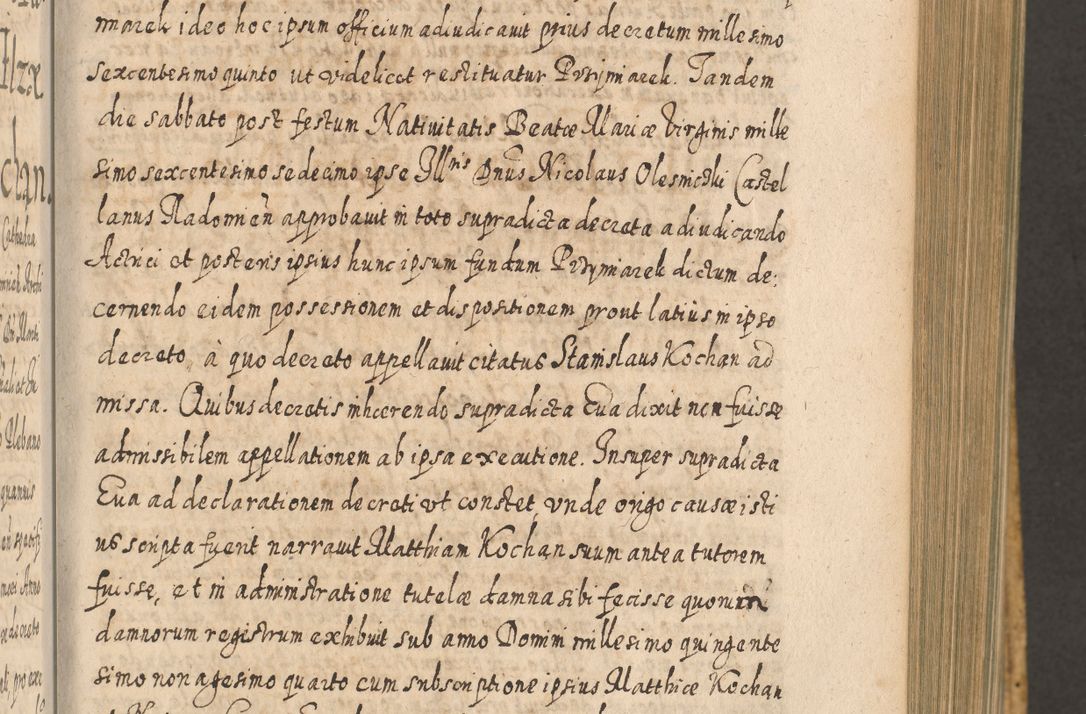 miarek ideo hoc ipsum officium adiudicauit prius decretum millesimo
sexcentesimo quinto ut videlicet restituatur Przymiarek. Tandem
die sabbato post festum Natiuitatis Beatæ Mariæ Virginis mille
simo sexcentesimo sedecimo ipse Illris Dnus Nicolaus Olesnicski Castel
lanus Radomień approbauit in toto supradicta decreta adiudicando
Actrici et posteris ipsius hunc ipsum fundum Przymiarek dictum de:
cernendo eidem possessionem et dispositionem prout latius in ipso
decreto, à quo decreto appellauit citatus Stanislaus Kochan ad
missa. Quibus decretis inhærendo supradicta Eua dixit non fuisse
admissibilem appellationem ab ipsa executione. Insuper supradicta
Eua ad declarationem decreti vt constet, vnde origo causæ isti
us scripta fuerit narrauit Matthiam Kochan suum antea tutorem
fuisse, et in administratione tutelæ damna sibi fecisse quorum
damnorum registrum exhibuit sub anno Domini millesimo quingente
simo nonagesimo quarto cum subscriptione ipsius Matthiæ Kochan